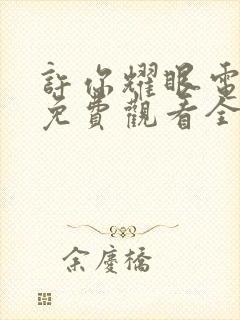 許你耀眼電
免費觀看全
余慶橋